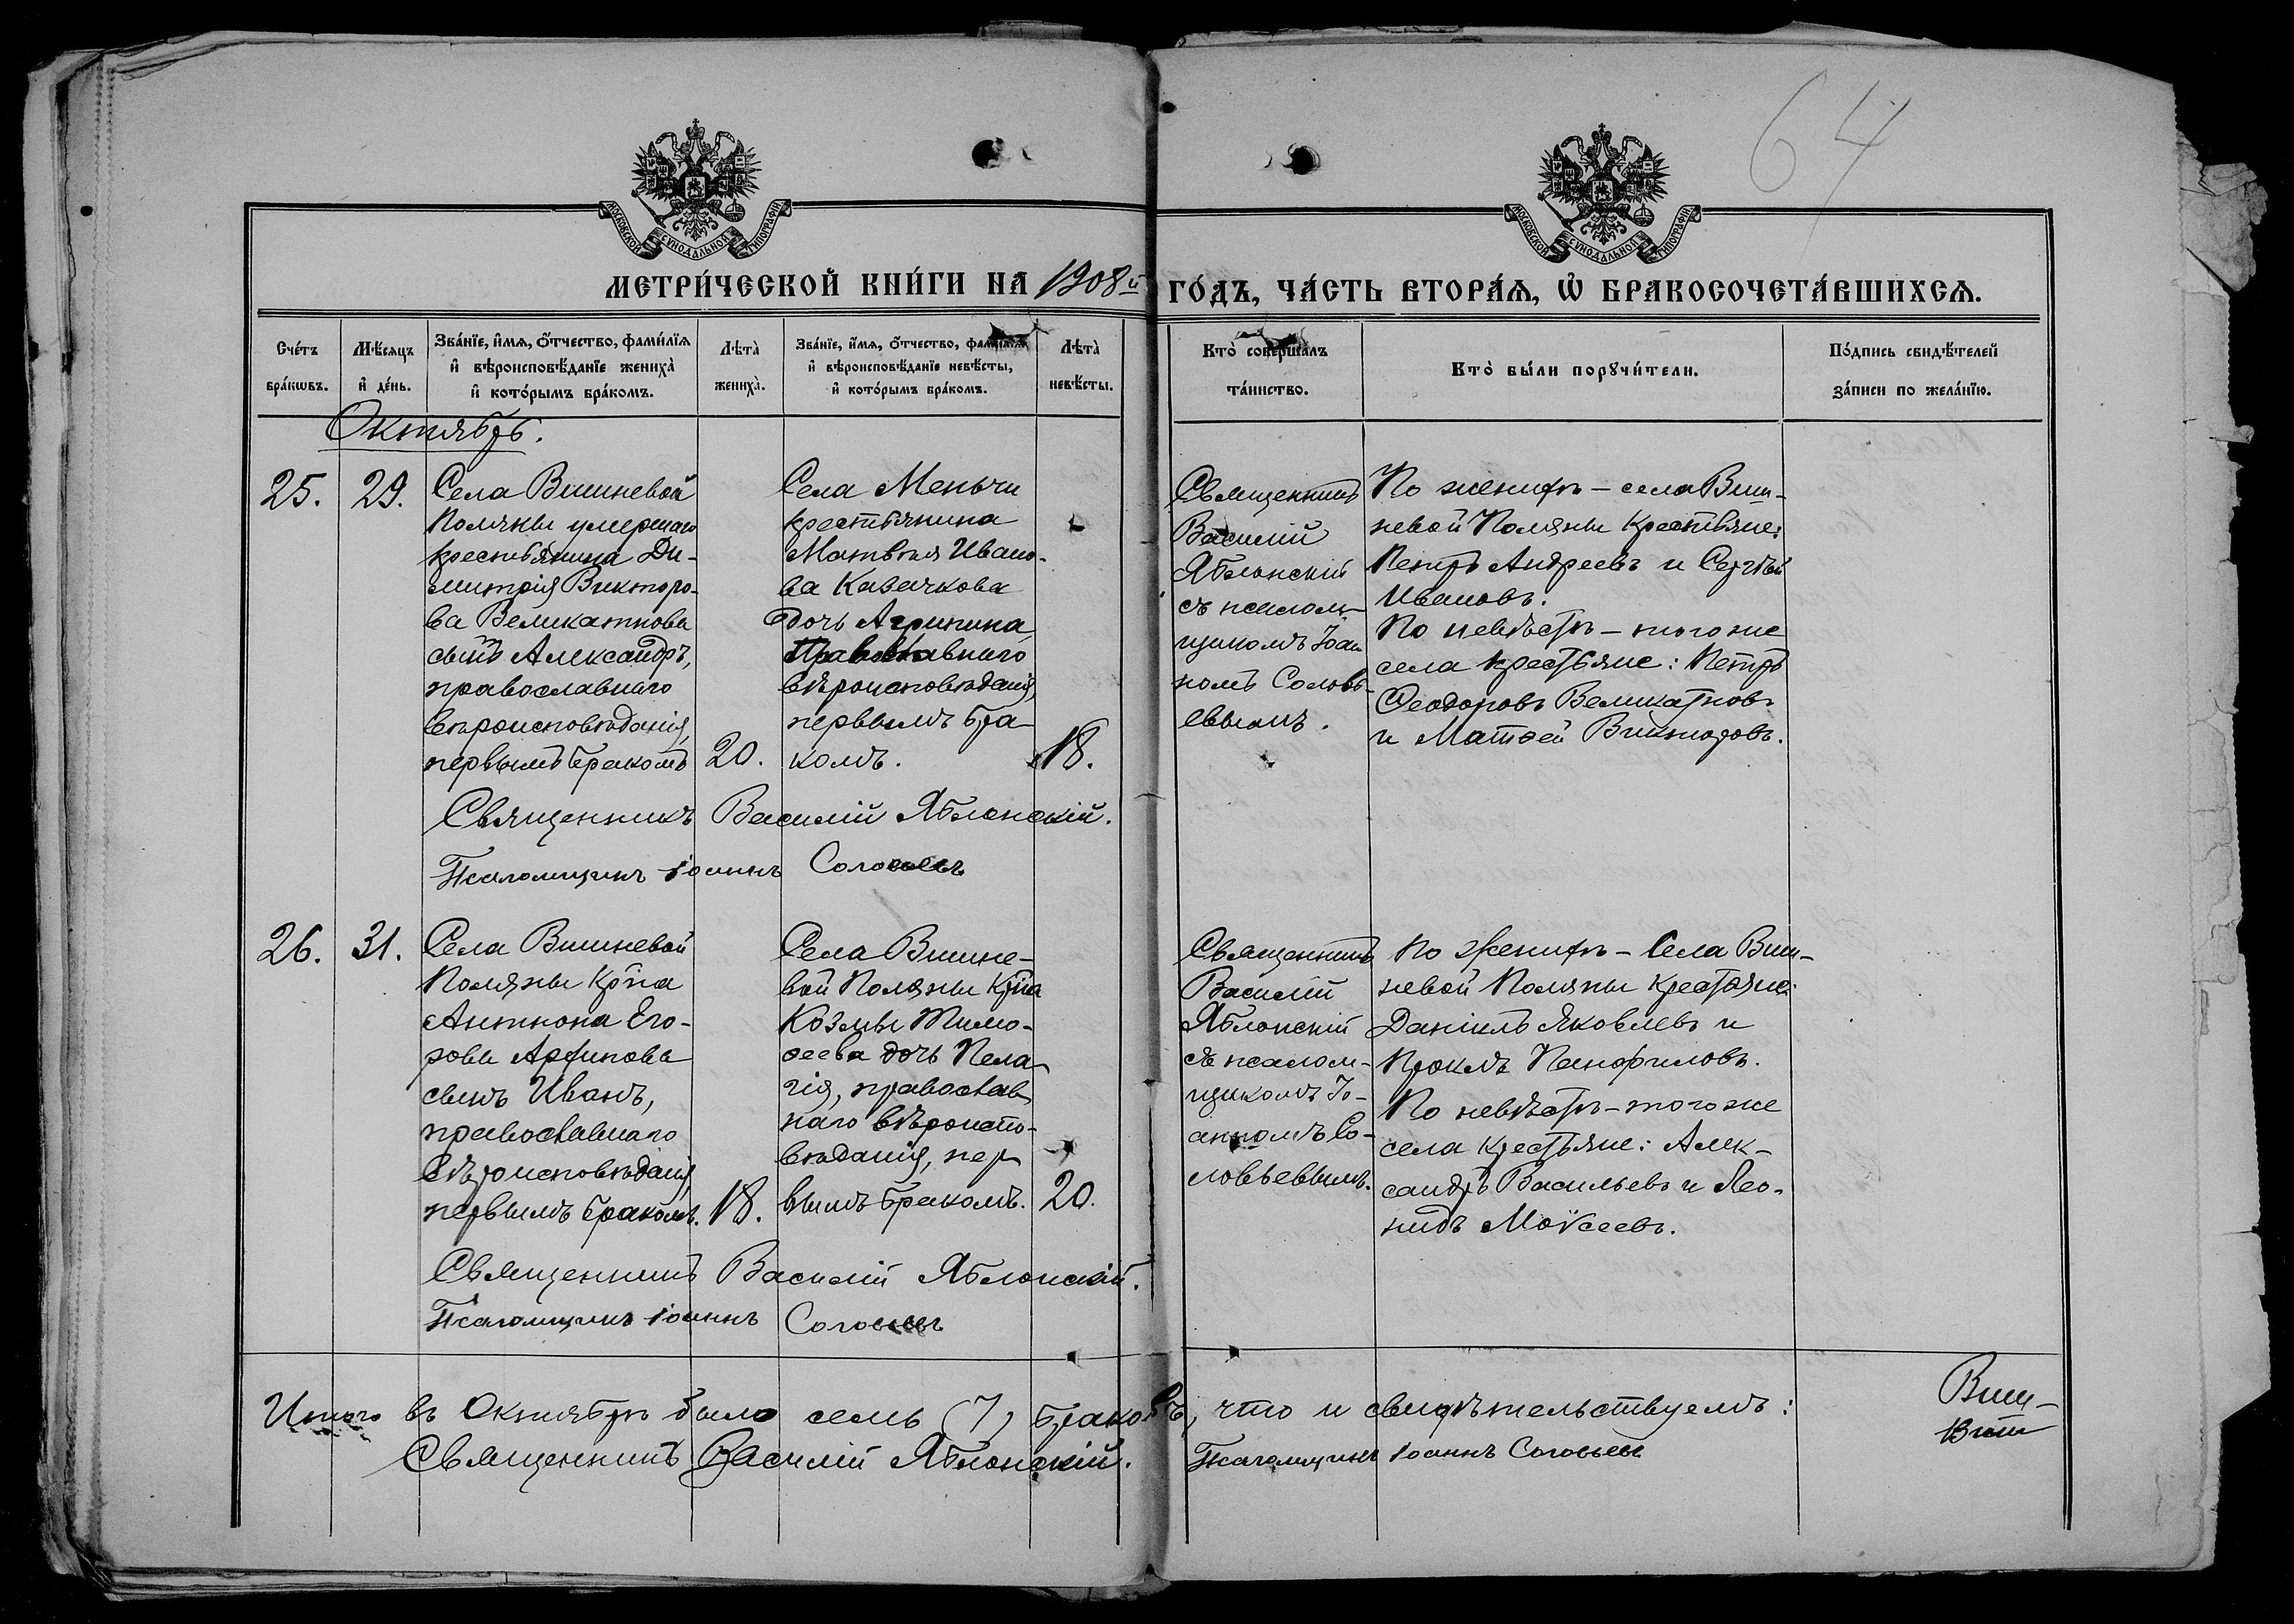 64
МОСКОВСКОЙ СУНОДАЛЬНОЙ ТИПОГРАФІИ
МОСКОВСКОЙ СУНОДАЛЬНОЙ ТИПОГРАФІИ
МЕТРИ́ЧЕСКОЙ КНИ́ГИ НА 1908й ГО́ДЪ, ЧА́СТЬ ВТОРА́Я, Ѡ БРАКОСОЧЕТА́ВШИХСЯ.
Сче́тъ бра́кѡвъ.
Мѣ́сяцъ и де́нь.
Зва́нїе, и́мя, о́тчество, фами́лїя
и вѣроисповѣ́данїе жениха̀
и кото́рымъ бра́комъ.
Лѣта̀ жениха̀.
Зва́нїе, и́мя, о́тчество, фами́лїя
и вѣроисповѣ́данїе невѣ́сты,
и кото́рымъ бра́комъ.
Лѣта̀ невѣ́сты.
Кто̀ соверша́лъ та́инство.
Кто̀ бы́ли порꙋчи́тели.
По́дпись свидѣ́телей за́писи по жела́нїю.
Октябрь.
25.
29.
Села Вишневой
Поляны умершаго
крестьянина Ди-
митрія Викторо-
ва Великатнова
сынъ Александръ,
православнаго
вѣроисповѣданія,
первымъ бракомъ
20.
Села Меньчи
крестьянина
Матвѣя Ивано-
ва Казачкова
дочь Агрипина,
Православнаго
вѣроисповѣданія,
первымъ бра-
комъ.
18.
Священникъ
Василій
Яблонскій
съ псалом-
щикомъ Іоан
номъ Соловь-
евымъ.
По женихѣ – села Виш-
невой Поляны крестьяне:
Петръ Андреевъ и Сергѣй
Ивановъ.
По невѣстѣ – того же
села крестьяне: Петръ
Ѳеодоровъ Великатновъ
и Матѳей Викторовъ.
Священникъ Василій Яблонскій.
Псаломщикъ Іоаннъ Соловьевъ
26.
31.
Села Вишневой
Поляны кр̃на
Антона Его-
рова Арфинова
сынъ Иванъ,
православнаго
вѣроисповѣданія
первымъ бракомъ.
18.
Села Вишне-
вой Поляны кр̃на
Козмы Тимо-
ѳеева дочь Пела-
гія, православ
наго вѣроиспо-
вѣданія, пер
вымъ бракомъ.
20.
Священникъ
Василій
Яблонскій
съ псалом-
щикомъ Іо-
анномъ Со-
ловьевымъ.
По женихѣ – Села Виш-
невой Поляны крестьяне:
Даніилъ Яковлевъ и
Проклъ Панфиловъ.
По невѣстѣ – того же
села крестьяне: Алек-
сандръ Васильевъ и Лео-
нидъ Моѵсеевъ.
Священникъ Василій Яблонскій.
Псаломщикъ Іоаннъ Соловьевъ
Итого въ Октябрѣ было семь (7) браковъ, что и свидѣтельствуемъ:
Священникъ Василій Яблонскій. Псаломщикъ Іоаннъ Соловьевъ
Виш-